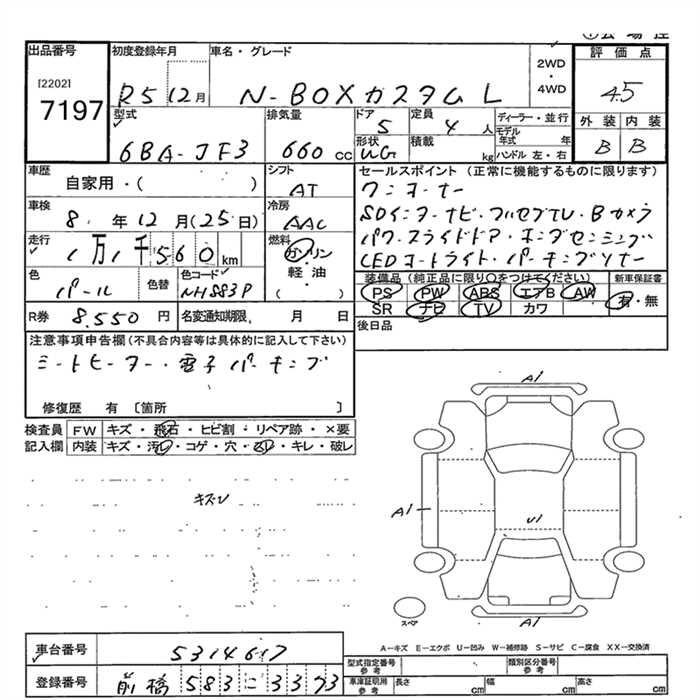 出品番号
[2202]
7197
初度登録年月
R5 12月
車名・グレード
N-BOXカスタム L
2WD
・
4WD
評価点
4.5
外装 内装
B B
型式
6BA-JF3
排気量
660 cc
ドア
5
形状
UG
定員
4 人
積載
kg
ディーラー・並行
モデル年式 年
ハンドル 左・右
車歴
自家用・( )
シフト
AT
車検
8年12月(25日)
冷房
AAC
走行
1万1千560km
燃料
ガソリン
軽油
( )
色
パール
色替
色コード
NH883P
R券
8,550円
名変通知期限 月 日
セールスポイント (正常に機能するものに限ります)
ワンオーナー
SDインターナビ・フルセグTV・Bカメラ
パワースライドドア・ホンダセンシング
LEDオートライト・パーキングソナー
装備品(純正品に限り○をつけてください)
新車保証書
PS PW ABS エアB AW
SR ナビ TV カワ
有・無
後日品
注意事項申告欄(不具合内容等は具体的に記入して下さい)
シートヒーター・電子パーキング
修復歴 有 〔箇所 〕
検査員記入欄
FW キズ・飛石・ヒビ割・リペア跡・×要
内装 キズ・汚レ・コゲ・穴・スレ・キレ・破レ
A1
A1
U1
A1
スペア
A-キズ E-エクボ U-凹み W-補修跡 S-サビ C-腐食 XX-交換済
車台番号
5314617
登録番号
前橋 583 に 3373
型式指定番号
参考
類別区分番号
参考
車庫証明用
参考
長さ cm
幅 cm
高さ cm